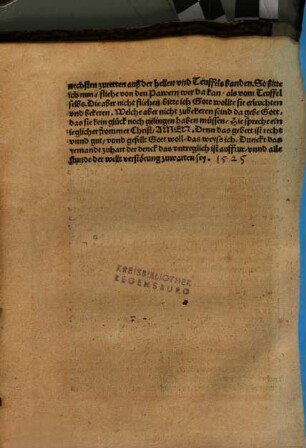 nechsten zuretten auß der hellen vnd Teuffels banden. So bitte
ich nun / fliehe von den Pawern wer da kan / als vom Teuffel
selbs. Die aber nicht fliehen / bitte ich Gott wollte sie erleuchten
vnd bekeren. Welche aber nicht zubekeren sind da gebe Gott /
das sie kein glück noch gelingen haben müssen. Hie spreche ein
ieglicher frommer Christ / AMEN. Denn das gebett ist recht
vnnd gut / vnd gefällt Gott woll / das weyß ich. Dunckt das
yemandt zuhart der denck das vntreglich ist auffrur / vnnd alle
stunde der wellt verstörung zuwarten sey. 1525
KREISBIBLIOTHEK
REGENSBURG